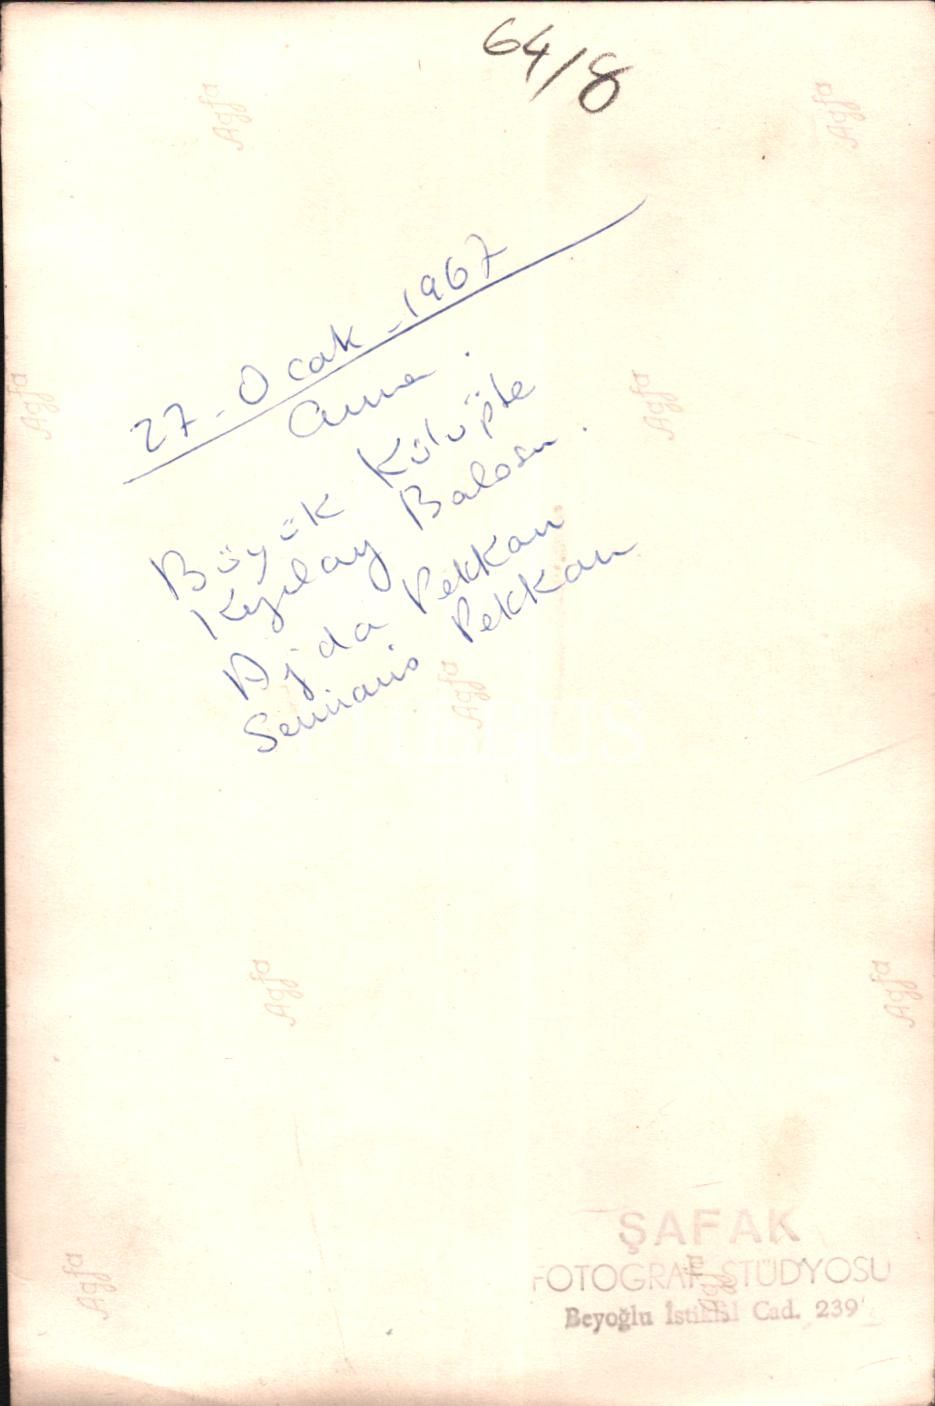 64/8
27-Ocak-1967
Cuma.
Büyük Kulüpte
Kızılay Balosu.
Ajda Pekkan
Semiramis Pekkan
Agfa
Agfa
Agfa
Agfa
Agfa
Agfa
Agfa
Agfa
Agfa
ŞAFAK
FOTOGRAF STÜDYOSU
Beyoğlu İstiklal Cad. 239